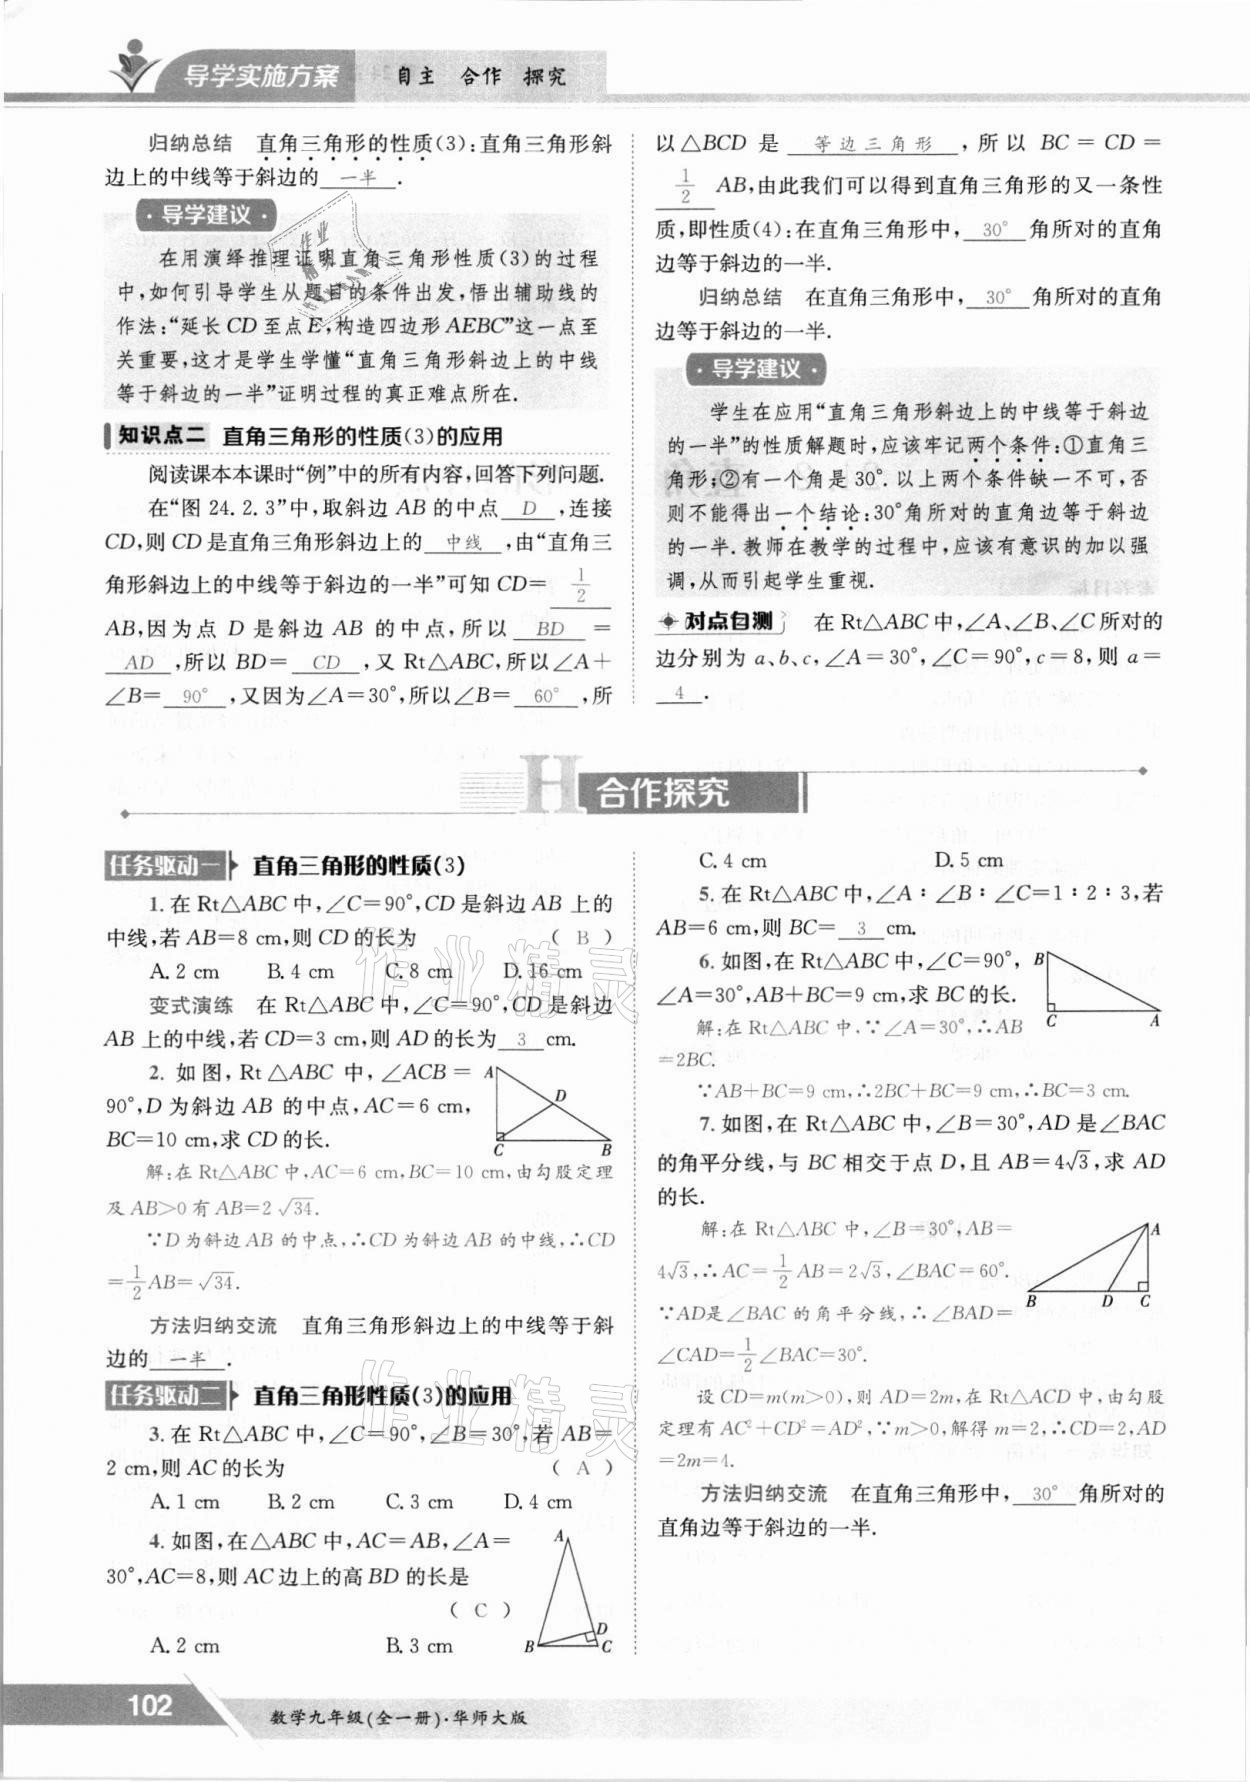 导学实施方案 自主 合作 探究
归纳总结 直角三角形的性质(3):直角三角形斜
边上的中线等于斜边的 一半 .
·导学建议·
在用演绎推理证明直角三角形性质(3)的过程
中,如何引导学生从题目的条件出发,悟出辅助线的
作法:“延长CD至点E,构造四边形AEBC”这一点至
关重要,这才是学生学懂“直角三角形斜边上的中线
等于斜边的一半”证明过程的真正难点所在.
知识点二 直角三角形的性质(3)的应用
阅读课本本课时“例”中的所有内容,回答下列问题.
在“图24.2.3”中,取斜边AB的中点 D ,连接
CD,则CD是直角三角形斜边上的 中线 ,由“直角三
角形斜边上的中线等于斜边的一半”可知CD= 1/2
AB,因为点 D 是斜边 AB 的中点,所以 BD =
AD ,所以BD= CD ,又Rt△ABC,所以∠A+
∠B= 90° ,又因为∠A=30°,所以∠B= 60° ,所
以△BCD 是 等边三角形 ,所以 BC=CD=
1/2 AB,由此我们可以得到直角三角形的又一条性
质,即性质(4):在直角三角形中, 30° 角所对的直角
边等于斜边的一半.
归纳总结 在直角三角形中, 30° 角所对的直角
边等于斜边的一半.
·导学建议·
学生在应用“直角三角形斜边上的中线等于斜边
的一半”的性质解题时,应该牢记两个条件:①直角三
角形;②有一个角是30°.以上两个条件缺一不可,否
则不能得出一个结论:30°角所对的直角边等于斜边
的一半.教师在教学的过程中,应该有意识的加以强
调,从而引起学生重视.
对点自测 在Rt△ABC中,∠A、∠B、∠C所对的
边分别为a、b、c,∠A=30°,∠C=90°,c=8,则a=
4 .
H 合作探究
任务驱动一 直角三角形的性质(3)
1.在Rt△ABC中,∠C=90°,CD是斜边AB上的
中线,若AB=8 cm,则CD的长为 ( B )
A.2 cm B.4 cm C.8 cm D.16 cm
变式演练 在Rt△ABC中,∠C=90°,CD是斜边
AB上的中线,若CD=3 cm,则AD的长为 3 cm.
2. 如图,Rt△ABC 中,∠ACB=
90°,D为斜边AB的中点,AC=6 cm,
BC=10 cm,求CD的长.
A D C B
解:在Rt△ABC中,AC=6 cm,BC=10 cm,由勾股定理
及AB>0有AB=2√34.
∵D为斜边AB的中点,∴CD为斜边AB的中线,∴CD
=1/2AB=√34.
方法归纳交流 直角三角形斜边上的中线等于斜
边的 一半 .
任务驱动二 直角三角形性质(3)的应用
3.在Rt△ABC中,∠C=90°,∠B=30°,若AB=
2 cm,则AC的长为 ( A )
A.1 cm B.2 cm C.3 cm D.4 cm
4.如图,在△ABC中,AC=AB,∠A=
30°,AC=8,则AC边上的高BD的长是
( C )
A D B C
A.2 cm B.3 cm
C.4 cm D.5 cm
5.在Rt△ABC中,∠A∶∠B∶∠C=1∶2∶3,若
AB=6 cm,则BC= 3 cm.
6.如图,在Rt△ABC中,∠C=90°,
∠A=30°,AB+BC=9 cm,求BC的长.
B C A
解:在Rt△ABC中.∵∠A=30°,∴AB
=2BC.
∵AB+BC=9 cm,∴2BC+BC=9 cm,∴BC=3 cm.
7.如图,在Rt△ABC中,∠B=30°,AD是∠BAC
的角平分线,与BC相交于点D,且AB=4√3,求AD
的长.
解:在Rt△ABC中,∠B=30°,AB=
4√3,∴AC=1/2AB=2√3,∠BAC=60°.
∵AD是∠BAC的角平分线,∴∠BAD=
∠CAD=1/2∠BAC=30°.
A B D C
设CD=m(m>0),则AD=2m,在Rt△ACD中,由勾股
定理有AC²+CD²=AD²,∵m>0,解得m=2,∴CD=2,AD
=2m=4.
方法归纳交流 在直角三角形中, 30° 角所对的
直角边等于斜边的一半.
102 数学九年级(全一册)·华师大版
作业精灵
作业精灵